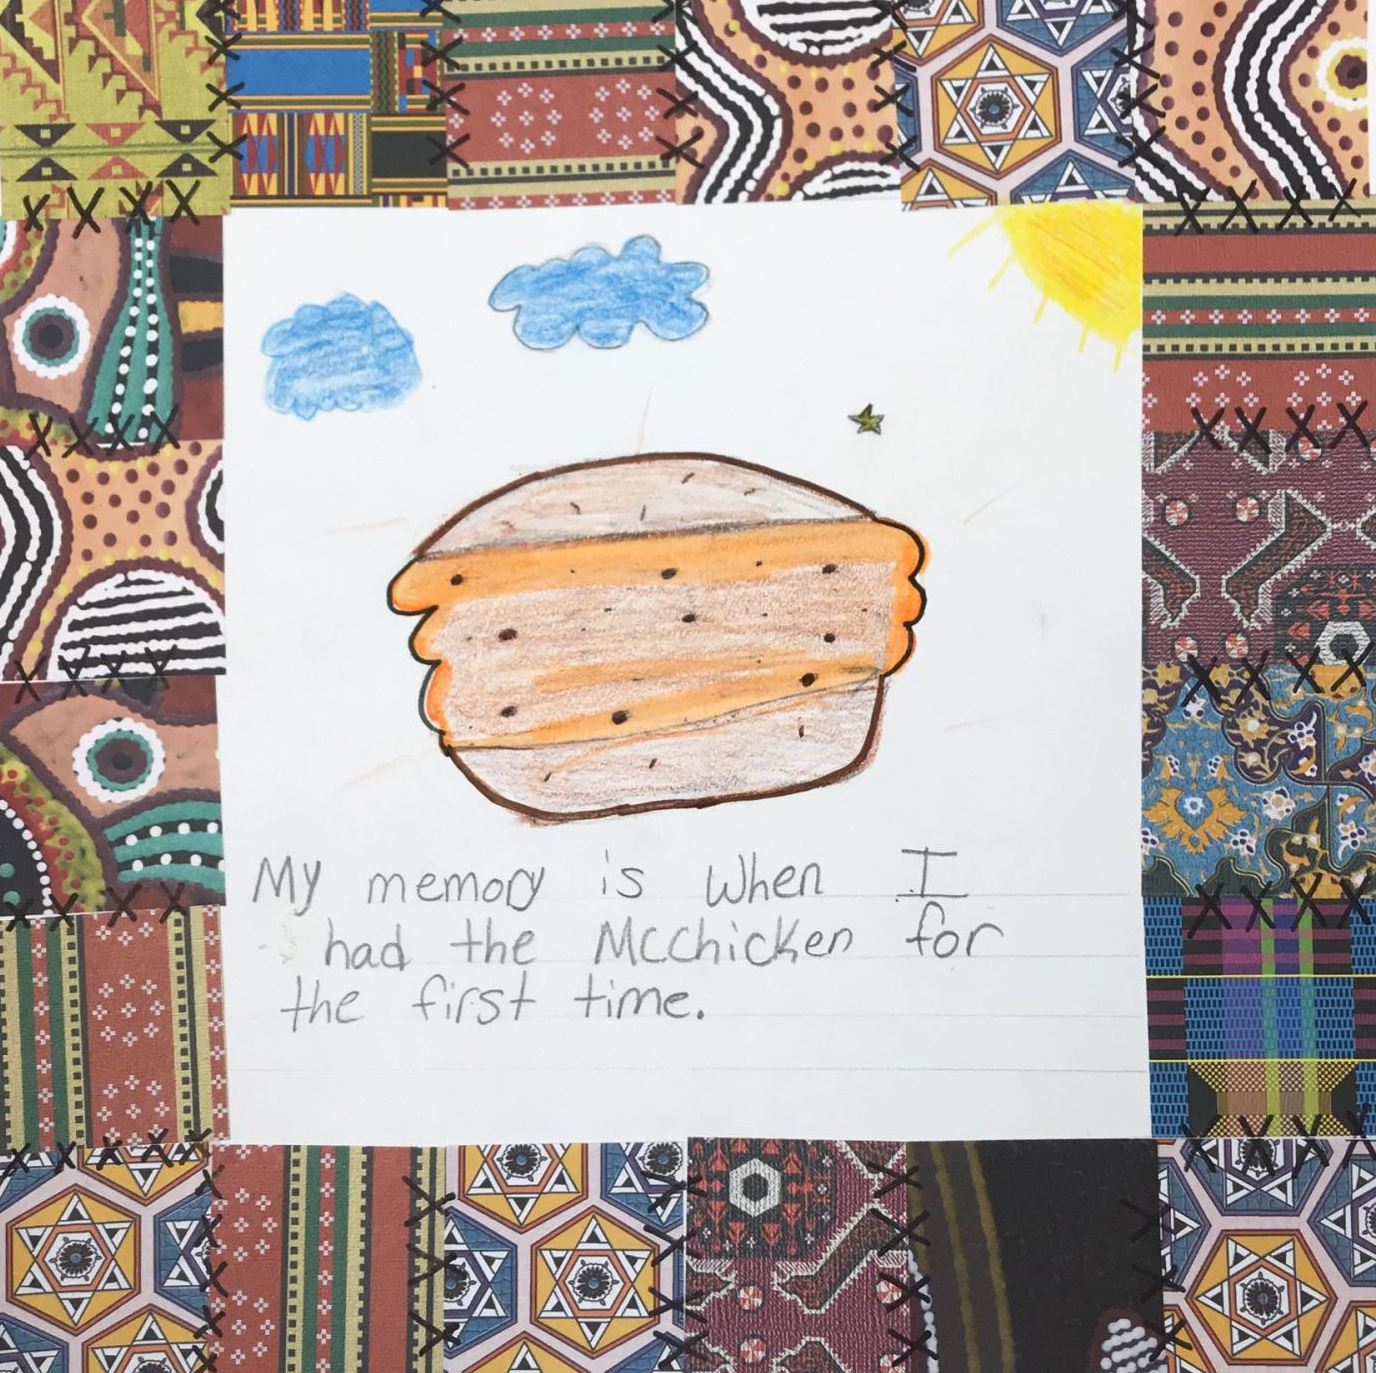 My memory is when I
had the McChicken for
the first time.